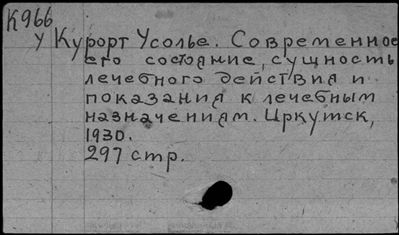 К966
У Курорт Усолье. Современное
его состояние, сущность
лечебного действия и
показания к лечебным
назначениям. Иркутск,
1930.
297 стр.